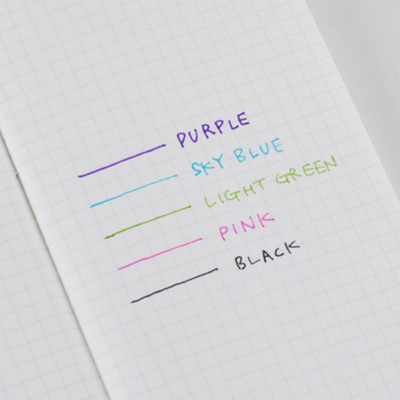 PURPLE
SKY BLUE
LIGHT GREEN
PINK
BLACK